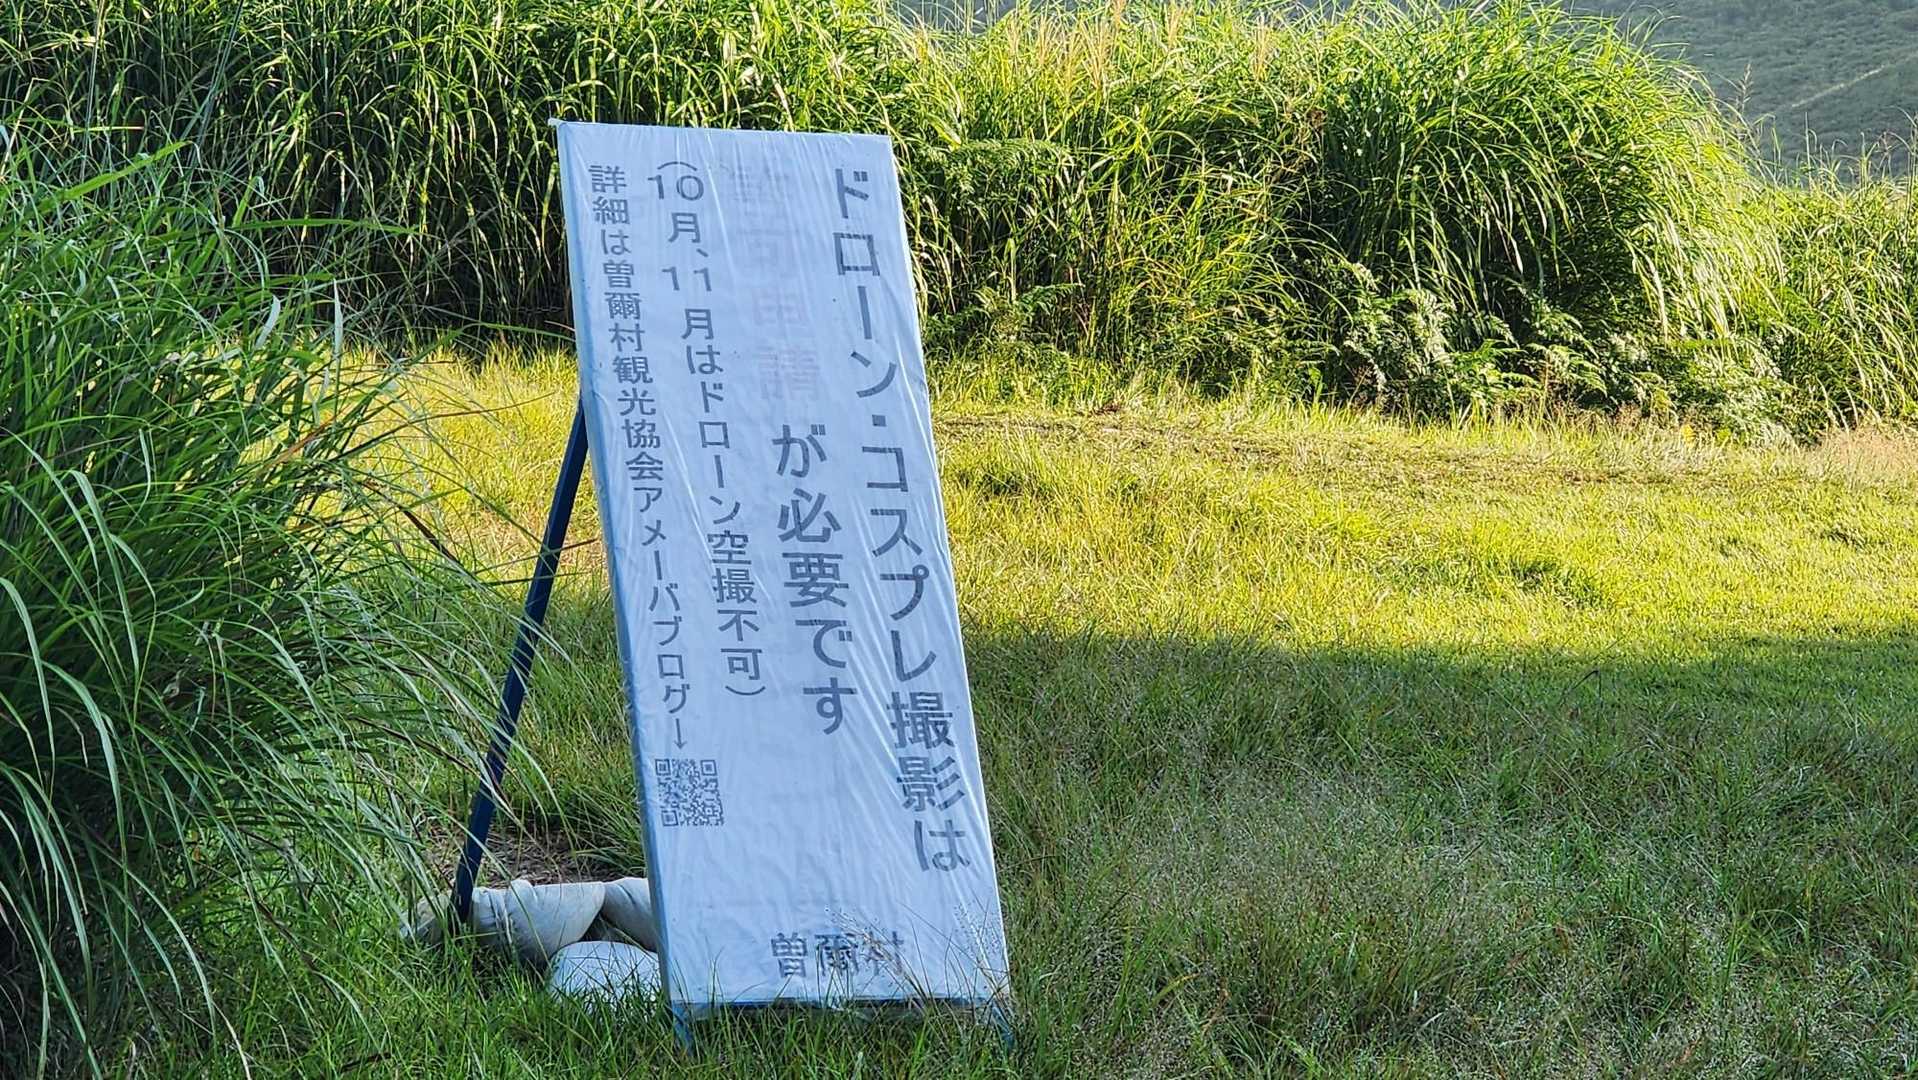 ドローン・コスプレ撮影は
許可申請が必要です
（10月、11月はドローン空撮不可）
詳細は曽爾村観光協会アメーバブログ→
曽爾村